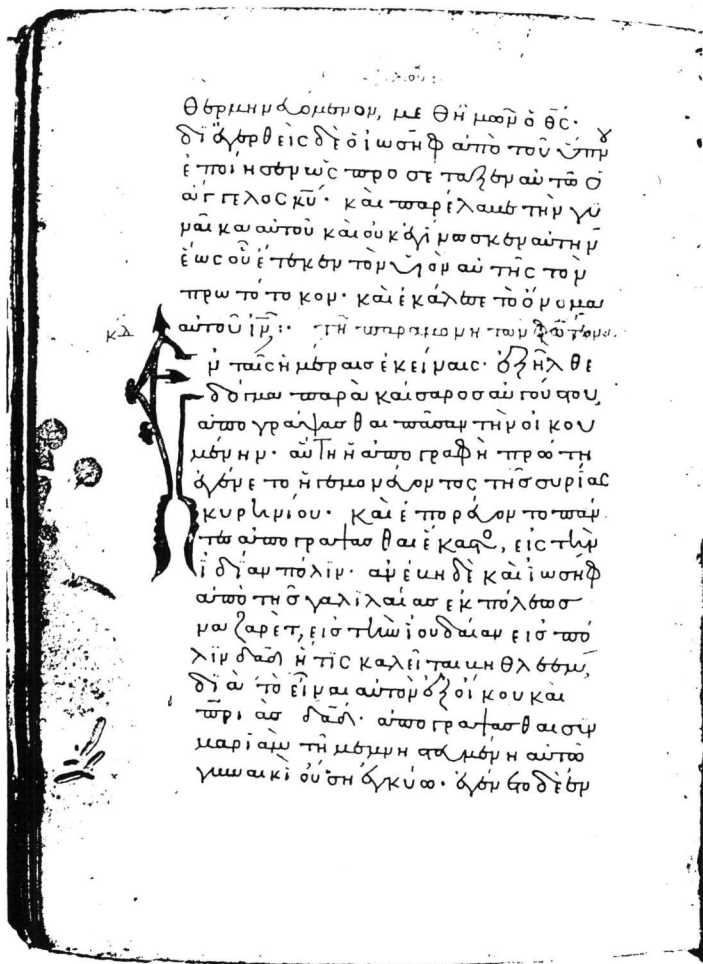 θερμηνευόμενον, μεθ ἡμῶν ὁ θς·
διεγερθεὶς δὲ ὁ ἰωσὴφ ἀπὸ τοῦ ὕπνου
ἐποίησεν ὡς προσέταξεν αὐτῶ ὁ
ἄγγελος κυ· καὶ παρέλαβε τὴν γυ
ναῖκα αὐτοῦ καὶ οὐκ ἐγίνωσκεν αὐτὴν
ἕως οὗ ἔτεκεν τὸν υἱὸν αὐτῆς τὸν
πρωτότοκον· καὶ ἐκάλεσε τὸ ὄνομα
αὐτοῦ ιν:· τῆ παραμονῆ των φώτων
κδ
Ἐν ταῖς ἡμέραις ἐκείναις· ἐξῆλθε
δόγμα παρὰ καίσαρος αὐγούστου,
ἀπογράψασθαι πᾶσαν τὴν οἰκου
μένην· αὕτη ἡ ἀπογραφὴ πρώτη
ἐγένετο ἡγεμονεύοντος τῆς συρίας
κυρηνίου· καὶ ἐπορεύοντο πάν
τες ἀπογράψασθαι ἕκαστος, εἰς τὴν
ἰδίαν πόλιν· ἀνέβη δὲ καὶ ἰωσὴφ
ἀπὸ τῆς γαλιλαίας ἐκ πόλεως
ναζαρὲτ, εἰς τὴν ἰουδαίαν εἰς πό
λιν δαδ ἥτις καλεῖται βηθλεὲμ,
διὰ τὸ εἶναι αὐτὸν ἐξ οἴκου καὶ
πριὰς δαδ· ἀπογράψασθαι σὺν
μαριὰμ τῆ μεμνηστευμένη αὐτῶ
γυναικὶ οὔση ἐγκύω· ἐγένετο δὲ ἐν